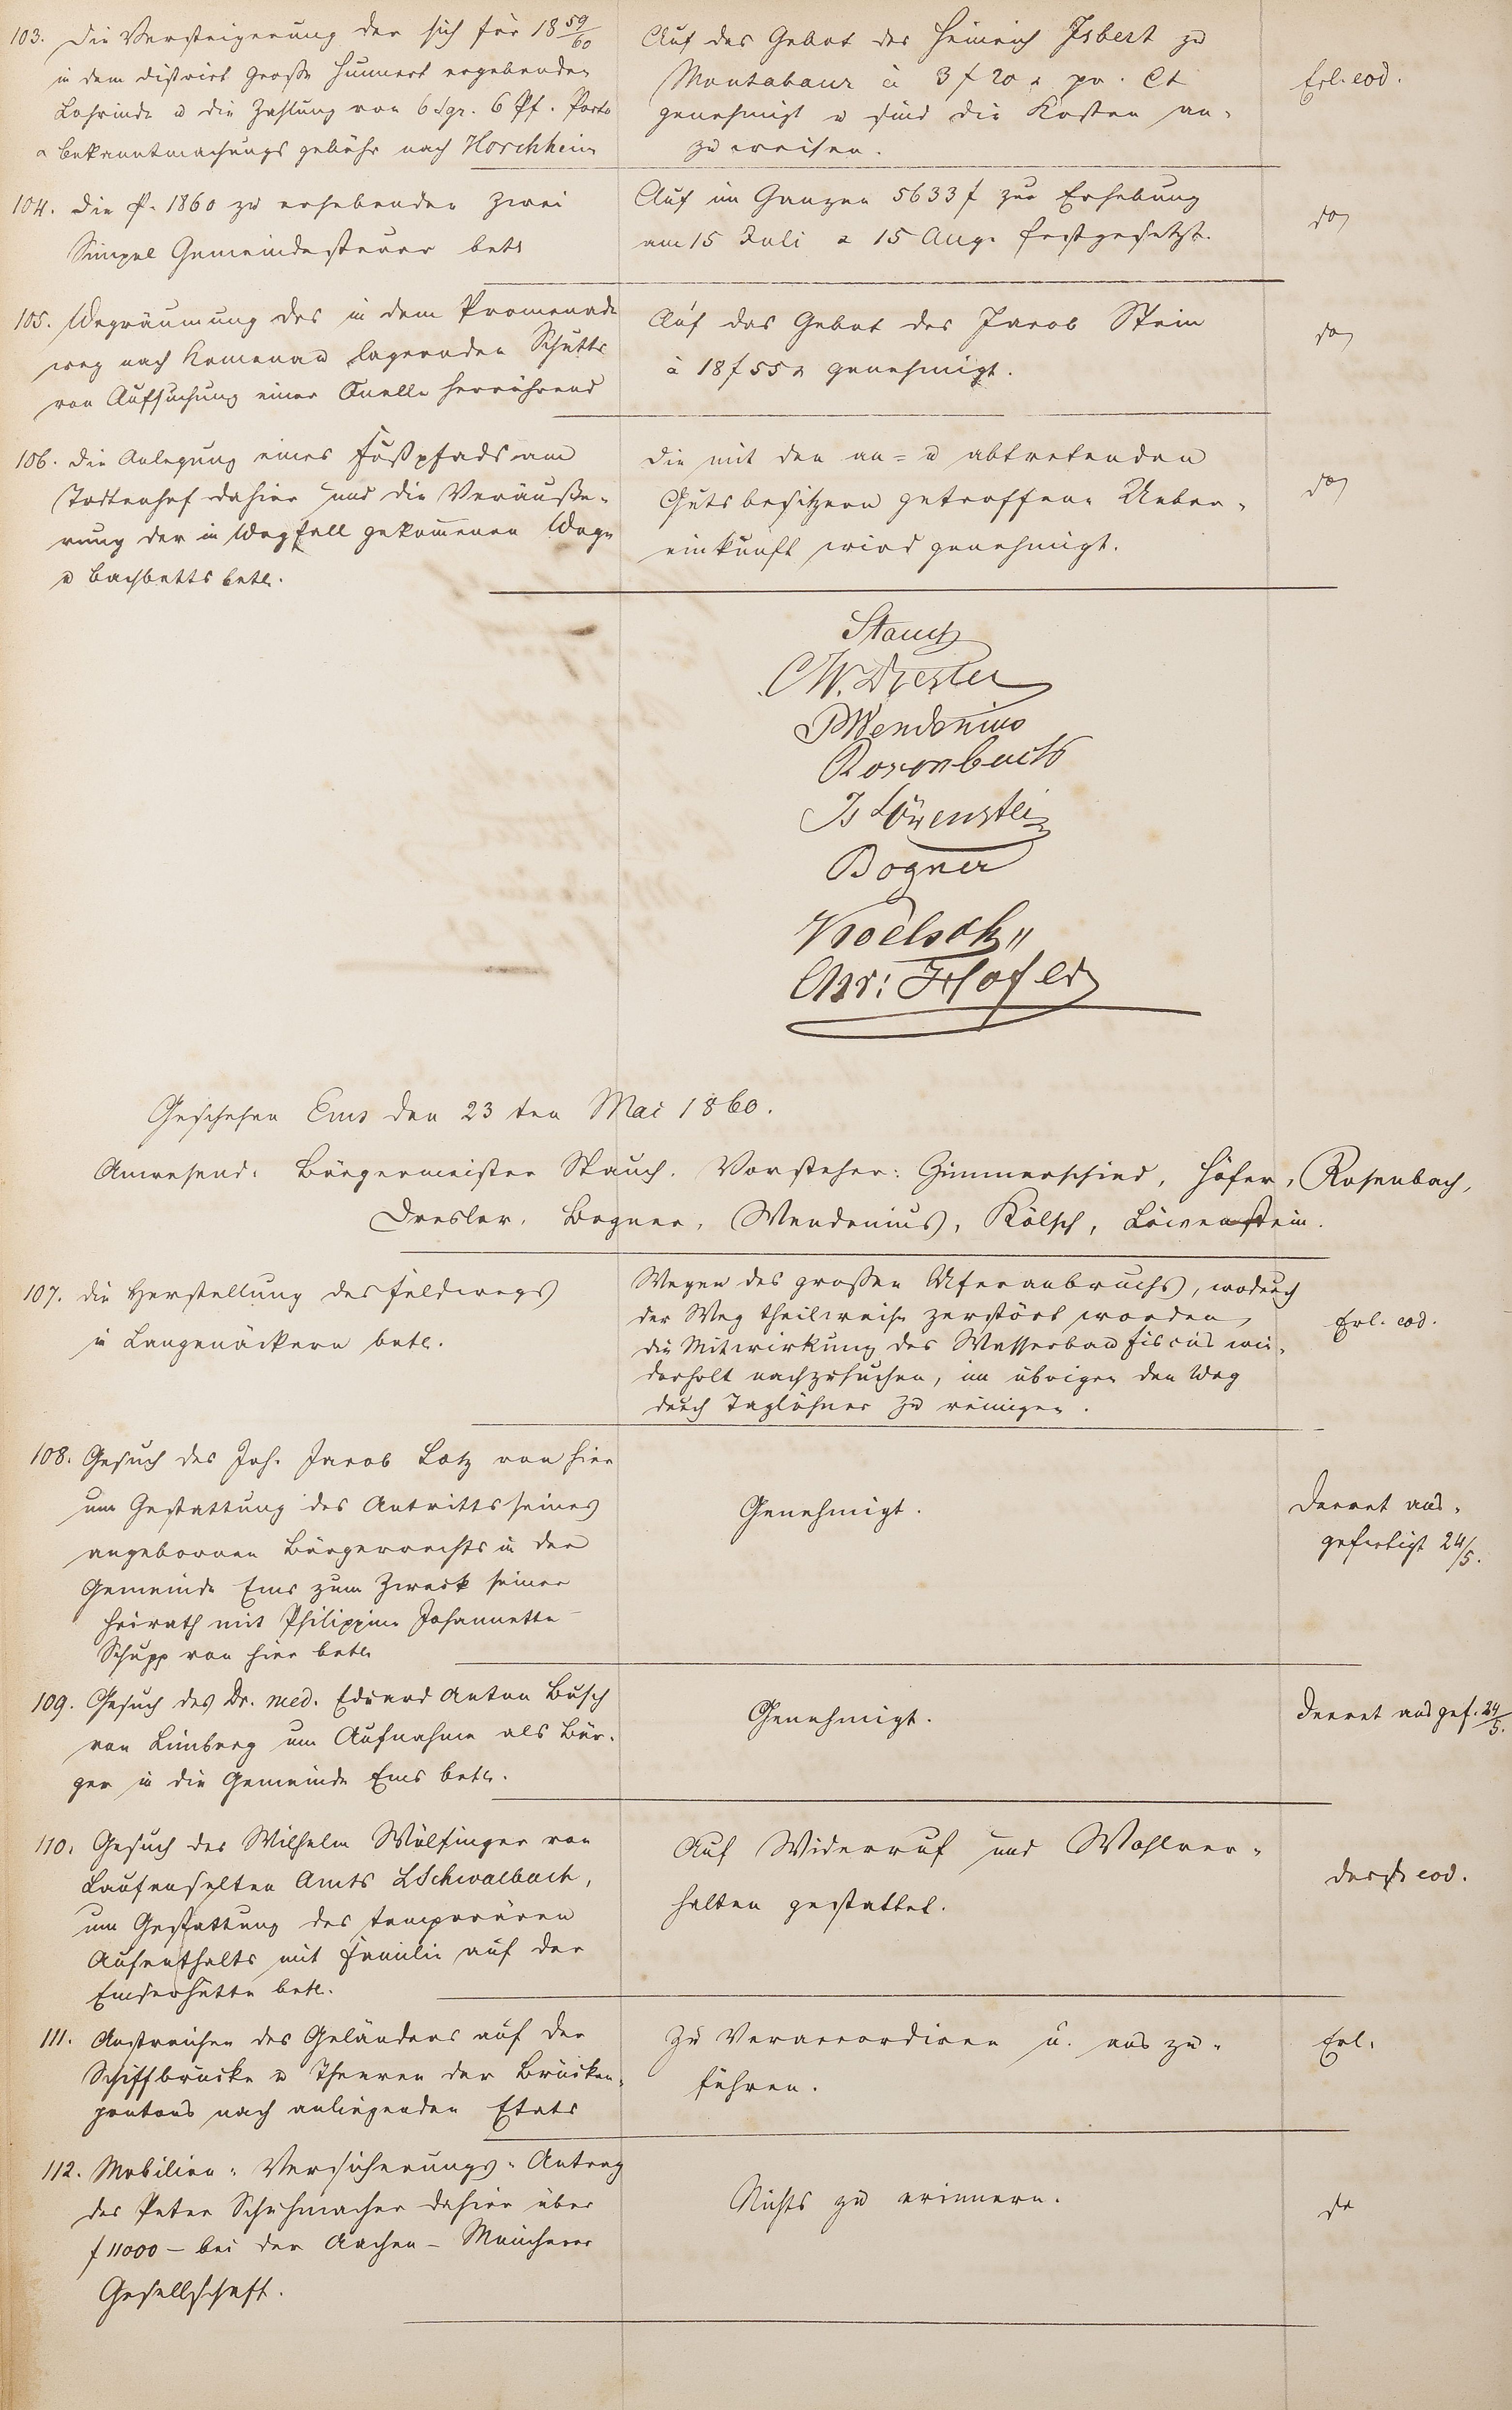 103. Die Versteigerung der sich für 18 59/60
in dem District Große Hunnert ergebenden
Lohrinde u die Zahlung von 6 Sgr. 6 Pf. Porto
& Bekanntmachungs gebühr nach Horchheim
Auf das Gebot des Heinrich Isbert zu
Montabaur à 3 f 20 x pr. Ct
genehmigt u sind die Kosten an-
zuweisen.
Erl. eod.
104. Die p. 1860 zu erhebenden zwei
Simpel Gemeindesteuer betr
Auf im Ganzen 5633 f zur Erhebung
am 15 Juli & 15 Aug. festgesetzt.
do
105. Wegräumung des in dem Promenade
weg nach Kemenau lagernden Schutts
von Aufsuchung einer Quelle herrührend
Auf das Gebot des Jacob Stein
à 18 f 55 x genehmigt.
do
106. Die Anlegung eines Fußpfads am
Todtenhof dahier und die Veräuße-
rung der in Wegfall gekommenen Wege
u Bachbetts betr.
Die mit den an= u abtretenden
Gutsbesitzern getroffene Ueber-
einkunft wird genehmigt.
do
Stauch
CW. Dresler
P Wendenius
Rosenbach
Is Löwenstein
Bogner
Koelsch
Chr: Höfer
Geschehen Ems den 23 ten Mai 1860.
Anwesend: Bürgermeister Stauch. Vorsteher: Gimmerschied, Höfer, Rosenbach,
Dresler, Bogner, Wendenius, Kölsch, Löwenstein.
107. Die Herstellung des Feldwegs
in Langenäckern betr.
Wegen des grossen Uferanbruchs, wodurch
der Weg theilweise zerstört worden,
die Mitwirkung des Wasserbau fiscus wie-
derholt nachzusuchen, im übrigen den Weg
durch Taglöhner zu reinigen.
Erl. eod.
108. Gesuch des Joh. Jacob Lotz von hier
um Gestattung des Antritts seines
angebornen Bürgerrechts in der
Gemeinde Ems zum Zweck seiner
Heirath mit Philippine Johannette
Schupp von hier betr
Genehmigt.
Decret aus-
gefertigt 24/5.
109. Gesuch des Dr. med. Eduard Anton Busch
von Limburg um Aufnahme als Bür-
ger in die Gemeinde Ems betr.
Genehmigt.
Decret ausgef. 24/5.
110. Gesuch des Wilhelm Wölfinger von
Laufenselten Amts LSchwalbach,
um Gestattung des temporären
Aufenthalts mit Familie auf der
Emserhütte betr.
Auf Widerruf und Wohlver-
halten gestattet.
desgl. eod.
111. Anstreichen des Geländers auf der
Schiffbrücke u Theeren der Brücken-
pontons nach anliegenden Etats
Zu veraccordiren u. aus zu-
führen.
Erl.
112. Mobilien-Versicherungs-Antrag
des Peter Schuhmacher dahier über
f 11000 – bei der Aachen – Münchener
Gesellschaft.
Nichts zu erinnern.
do